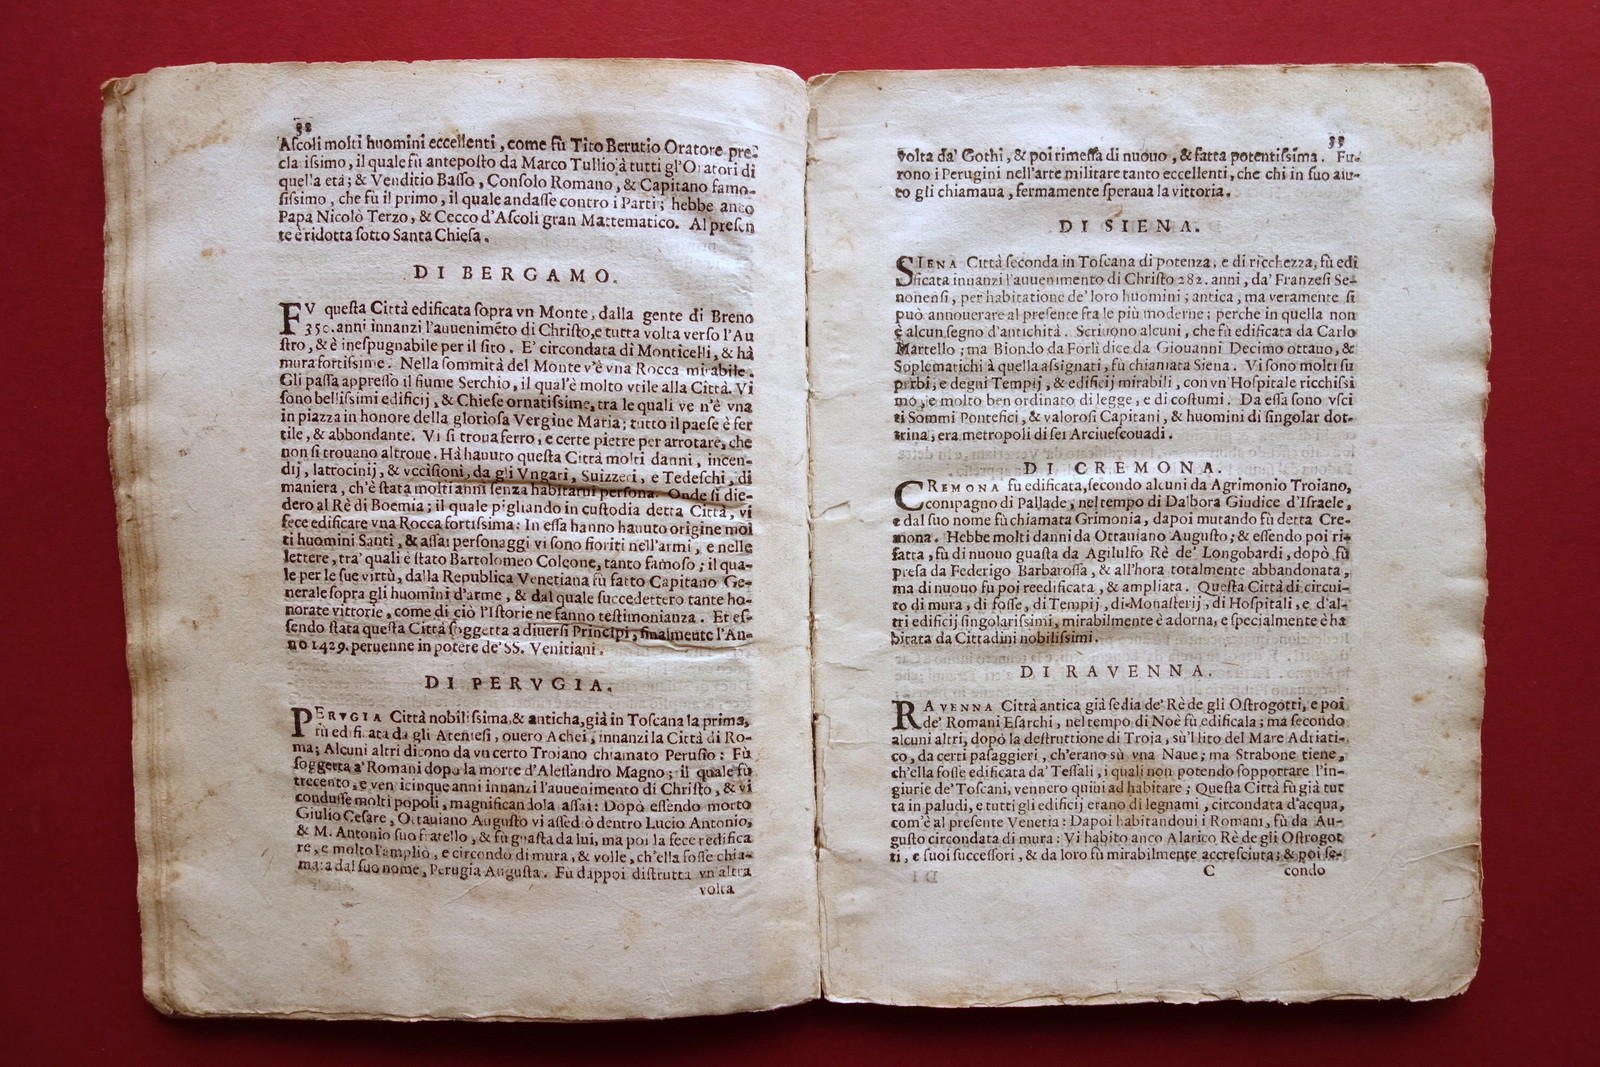 38
Aſcoli molti huomini eccellenti, come fù Tito Berutio Oratore pre-
cla iſſimo, il quale fù antepoſto da Marco Tullio à tutti gl'Oratori di
quella età; & Venditio Baſſo, Conſolo Romano, & Capitano famo-
ſiſſimo, che fù il primo, il quale andaſſe contro i Parti; hebbe anco
Papa Nicolò Terzo, & Cecco d'Aſcoli gran Mattematico. Al preſen
te è ridotta ſotto Santa Chieſa.
DI BERGAMO.
FV queſta Città edificata ſopra vn Monte, dalla gente di Breno
350. anni innanzi l'auuenimẽto di Chriſto, e tutta volta verſo l'Au
ſtro, & è ineſpugnabile per il ſito. E' circondata di Monticelli, & hà
mura fortiſſime. Nella ſommità del Monte v'è vna Rocca mirabile.
Gli paſſa appreſſo il fiume Serchio, il qual'è molto vtile alla Città. Vi
ſono belliſſimi edificij, & Chieſe ornatiſſime, tra le quali ve n'è vna
in piazza in honore della glorioſa Vergine Maria; tutto il paeſe è fer
tile, & abbondante. Vi ſi troua ferro, e certe pietre per arrotare, che
non ſi trouano altroue. Hà hauuto queſta Città molti danni, incen-
dij, latrocinij, & vcciſioni, da gli Vngari, Suizzeri, e Tedeſchi, di
maniera, ch'è ſtata molti anni ſenza habitarui perſona. Onde ſi die-
dero al Rè di Boemia; il quale pigliando in cuſtodia detta Città, vi
fece edificare vna Rocca fortiſſima: In eſſa hanno hauuto origine mol
ti huomini Santi, & aſſai perſonaggi vi ſono fioriti nell'armi, e nelle
lettere, tra' quali è ſtato Bartolomeo Coleone, tanto famoſo; il qua-
le per le ſue virtù, dalla Republica Venetiana fù fatto Capitano Ge-
nerale ſopra gli huomini d'arme, & dal quale ſuccedettero tante ho-
norate vittorie, come di ciò l'Iſtorie ne fanno teſtimonianza. Et eſ-
ſendo ſtata queſta Città ſoggetta a diuerſi Principi, finalmente l'An-
no 1429. peruenne in potere de' SS. Venitiani.
DI PERVGIA.
PERVGIA Città nobiliſſima, & anticha, già in Toſcana la prima,
fù edificata da gli Atenieſi, ouero Achei, innanzi la Città di Ro-
ma; Alcuni altri dicono da vn certo Troiano chiamato Peruſio: Fù
ſoggetta a' Romani dopo la morte d'Aleſſandro Magno; il quale fù
trecento, e ven icinque anni innanzi l'auuenimento di Chriſto, & vi
conduſſe molti popoli, magnificandola aſſai: Dopò eſſendo morto
Giulio Ceſare, Ottauiano Auguſto vi aſſediò dentro Lucio Antonio,
& M. Antonio ſuo fratello, & fù guaſta da lui, ma poi la fece redifica
re, e molto l'ampliò, e circondo di mura, & volle, ch'ella foſſe chia-
mata dal ſuo nome, Perugia Auguſta. Fù dappoi diſtrutta vn'altra
volta
volta da' Gothi, & poi rimeſſa di nuouo, & fatta potentiſſima. Fu-
rono i Perugini nell'arte militare tanto eccellenti, che chi in ſuo aiu-
to gli chiamaua, fermamente ſperaua la vittoria.
DI SIENA.
SIENA Città ſeconda in Toſcana di potenza, e di ricchezza, fù edi
ficata innanzi l'auuenimento di Chriſto 282. anni, da' Franzeſi Se-
nonenſi, per habitatione de' loro huomini; antica, ma veramente ſi
può annouerare al preſente fra le più moderne; perche in quella non
è alcun ſegno d'antichità. Scriuono alcuni, che fù edificata da Carlo
Martello; ma Biondo da Forlì dice da Giouanni Decimo ottauo, &
Soplematichi à quella aſſignati, fù chiamata Siena. Vi ſono molti ſu
perbi, e degni Tempij, & edificij mirabili, con vn'Hoſpitale ricchiſſi
mo, e molto ben ordinato di legge, e di coſtumi. Da eſſa ſono vſci
ti Sommi Pontefici, & valoroſi Capitani, & huomini di ſingolar dot-
trina, era metropoli di ſei Arciueſcouadi.
DI CREMONA.
CREMONA fù edificata, ſecondo alcuni da Agrimonio Troiano,
compagno di Pallade, nel tempo di Dalbora Giudice d'Iſraele,
e dal ſuo nome fù chiamata Grimonia, dapoi mutando fù detta Cre-
mona. Hebbe molti danni da Ottauiano Auguſto; & eſſendo poi ri-
fatta, fù di nuouo guaſta da Agilulfo Rè de' Longobardi, dopò fù
preſa da Federigo Barbaroſſa, & all'hora totalmente abbandonata,
ma di nuouo fu poi reedificata, & ampliata. Queſta Città di circui-
to di mura, di foſſe, di Tempij, di Monaſterij, di Hoſpitali, e d'al-
tri edificij ſingolariſſimi, mirabilmente è adorna, e ſpecialmente è ha
bitata da Cittadini nobiliſſimi.
DI RAVENNA.
RAVENNA Città antica già ſedia de' Rè de gli Oſtrogotti, e poi
de' Romani Eſarchi, nel tempo di Noè fù edificala; ma ſecondo
alcuni altri, dopò la deſtruttione di Troja, sù'l lito del Mare Adriati-
co, da certi paſaggieri, ch'erano sù vna Naue; ma Strabone tiene,
ch'ella foſſe edificata da' Teſſali, i quali non potendo ſopportare l'in-
giurie de' Toſcani, vennero quiui ad habitare; Queſta Città fù già tut
ta in paludi, e tutti gli edificij erano di legnami, circondata d'acqua,
com'è al preſente Venetia: Dapoi habitandoui i Romani, fù da Au-
guſto circondata di mura: Vi habito anco Alarico Rè de gli Oſtrogot
ti, e ſuoi ſucceſſori, & da loro fù mirabilmente accreſciuta; & poi ſe-
C condo